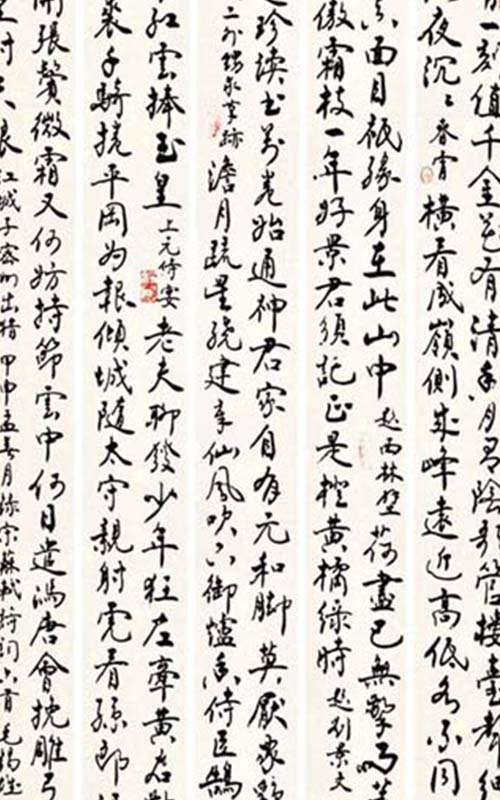 一刻值千金花有清香月有陰歌管樓臺聲細
夜沉〻 春宵 橫看成嶺側成峰遠近高低各不同
真面目祇緣身在此山中 題西林壁 荷盡已無擎雨蓋
傲霜枝一年好景君須記正是橙黃橘綠時 贈劉景文
足珍讀書萬卷始通神君家自有元和腳莫厭家雞
二外甥求筆跡 澹月疏星繞建章仙風吹下御爐香侍臣鵠
紅雲捧玉皇 上元侍宴 老夫聊發少年狂左牽黃右擎
裘千騎捲平岡為報傾城隨太守親射虎看孫郎
開張鬢微霜又何妨持節雲中何日遣馮唐會挽雕弓
射天狼 江城子密州出獵 甲申孟春月錄宋蘇軾詩詞六首